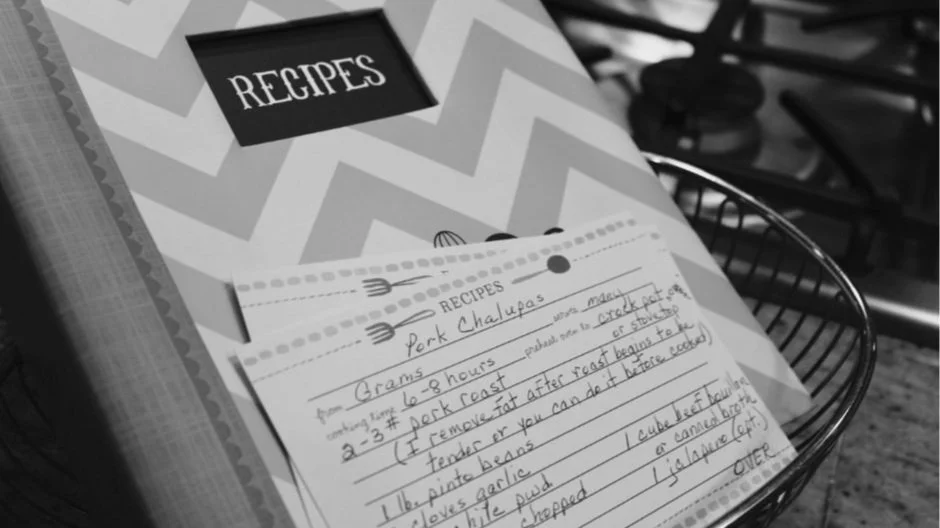 RECIPES
RECIPES
Pork Chalupas
from Grams serves many
cooking time 6-8 hours preheat oven to crock pot
or stovetop
2-3# pork roast
(I remove fat after roast begins to be
tender or you can do it before cooked)
1 lb. pinto beans 1 cube beef bouillon
cloves garlic or canned broth
pwd 1 jalapeno (opt.)
chopped OVER